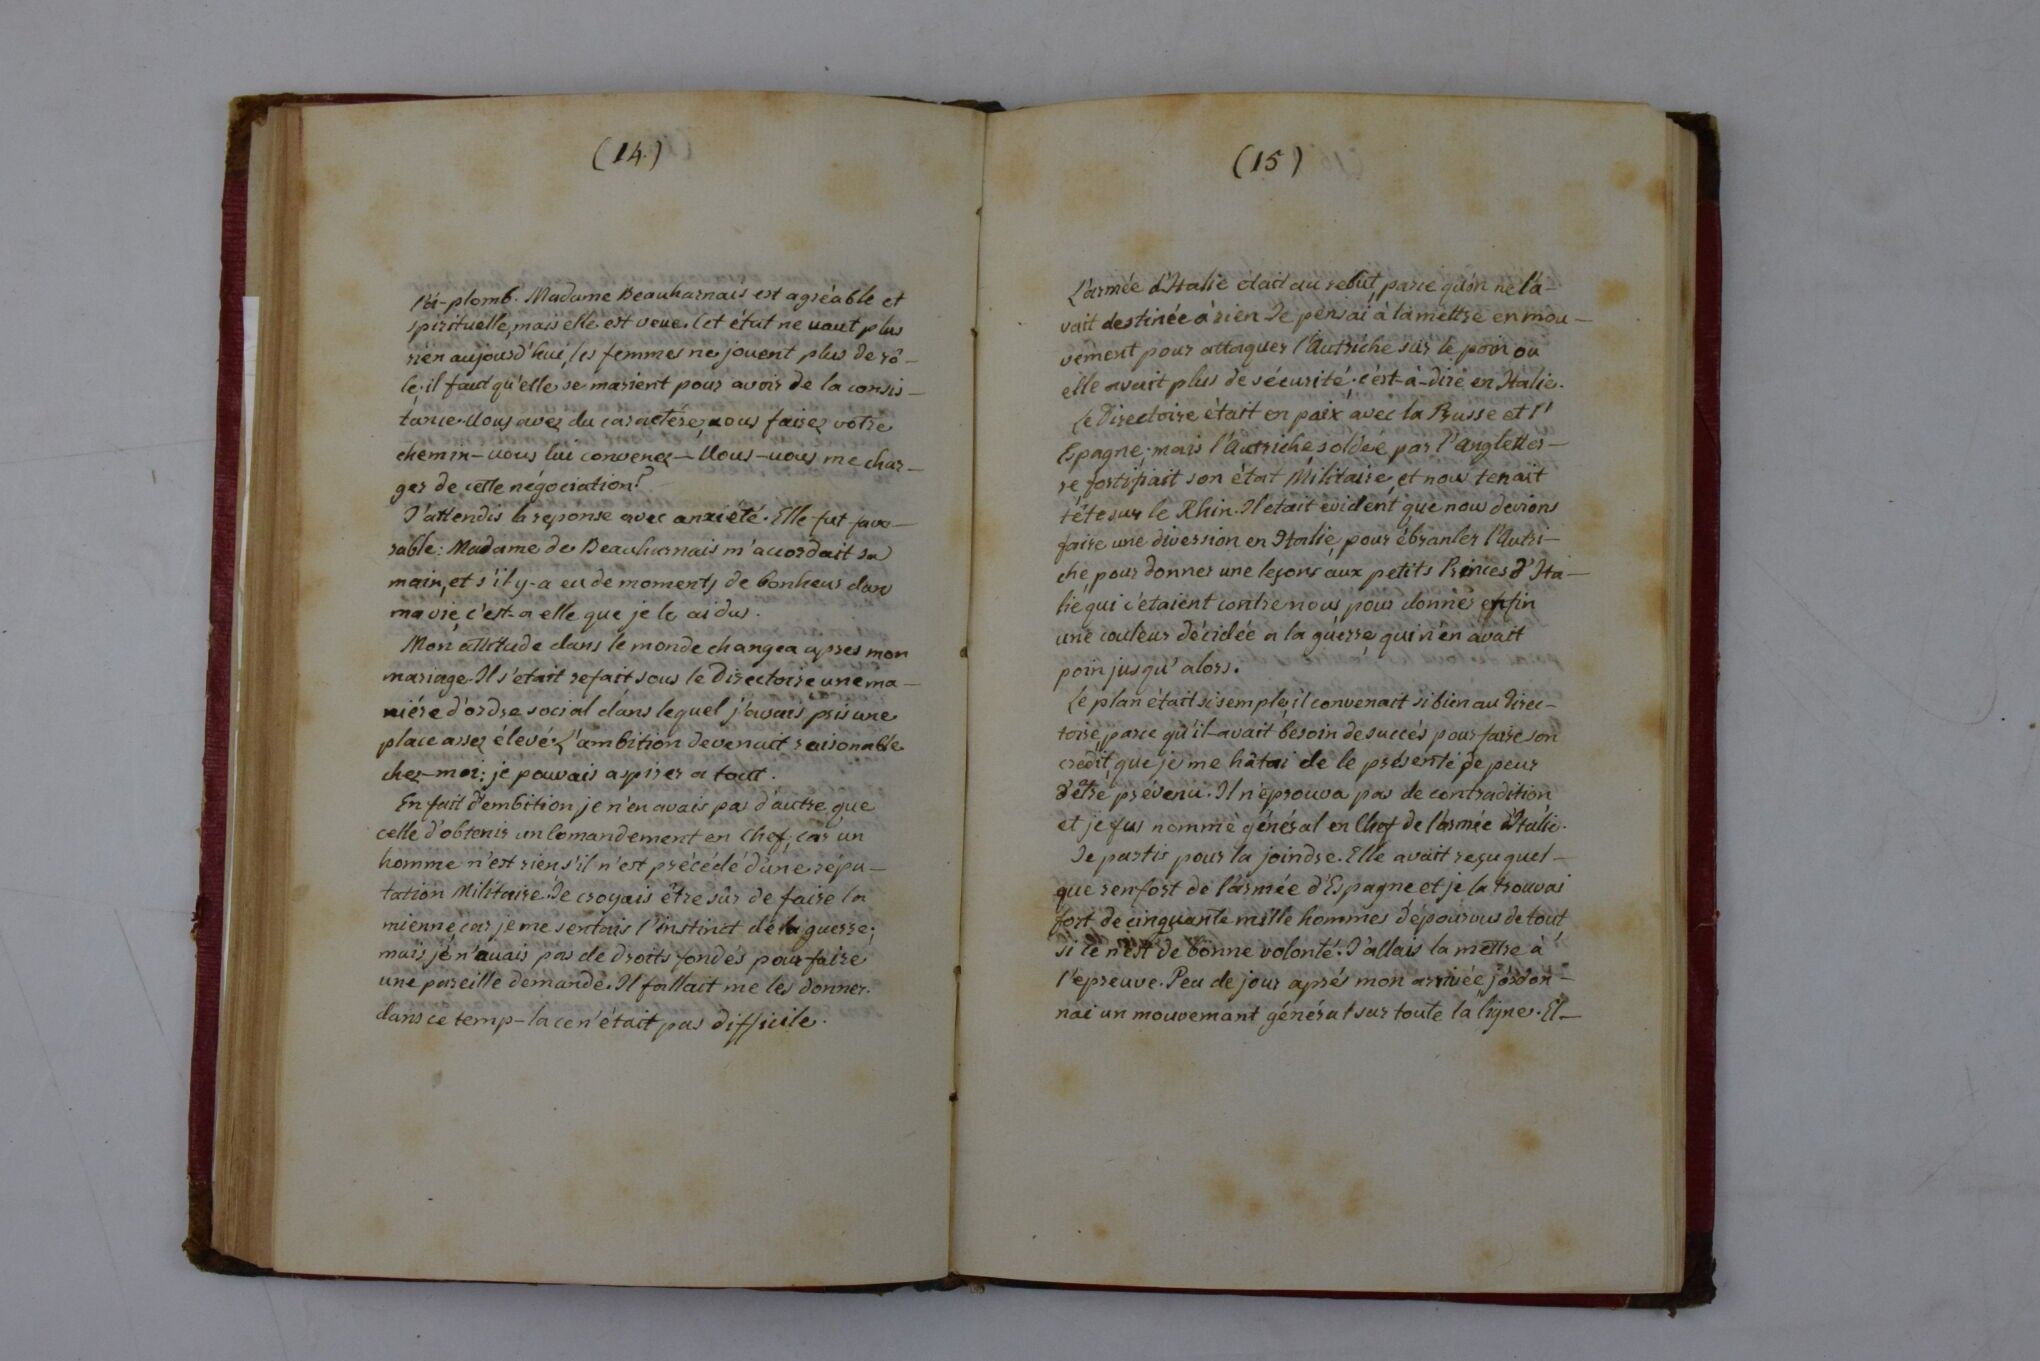 (14)
l'á-plomb. Madame Beauharnais est agréable et
spirituelle, mais elle est veue. Cet état ne vaut plus
rien aujourd'hui, les femmes ne jouent plus de rô-
le. il faut qu'elle se marient pour avoir de la consis-
tance. Vous avez du caractére, vous fairez votre
chemin - vous lui convenez - Vous-vous me char-
ger de cette négociation?
J'attendis la reponse avec anxiété. Elle fut favo-
rable: Madame de Beauharnais m'accordait sa
main, et s'il y-a eu de moments de bonheur dans
ma vie, c'est-a elle que je le ai dus.
Mon attitude dans le monde changea apres mon
mariage. Il s'etait refait sous le Directoire une ma-
niére d'ordre social dans lequel j'avais pris une
place assez élevé. L'ambition devenait raisonable
chez-moi; je pouvais aspirer a tout.
En fait d'embition je n'en avais pas d'autre que
celle d'obtenir un Comandement en chef; car un
homme n'est rien s'il n'est précédé d'une répu-
tation Militaire. Je croyais être sûr de faire la
mienne, car je me sentais l'instinct de la guerre;
mais je n'avais pas de droits fondés pour faire
une pareille demande. Il fallait me les donner.
dans ce temp-la ce n'était pas difficile.
(15)
L'armée d'Italie était au rebut, parce qu'on ne l'a-
vait destinée á rien Je pensai à la mettre en mou-
vement pour attaquer l'Autriche sur le poin ou
elle avait plus de sécurité. c'est-à-dire en Italie.
Le Directoire était en paix avec la Prusse et l'
Espagne, mais l'Autriche soldée par l'Angletter-
re fortifiait son état Militaire, et nous tenait
tête sur le Rhin. Il etait evident que nous devions
faire une diversion en Italie, pour ébranler l'Autri-
che, pour donner une leçons aux petits Princes d'Ita-
lie qui c'etaient contre nous, pour donner enfin
une couleur décidée a la guerre, qui n'en avait
poin jusqu'alors.
Le plan était si semple, il convenait si bien au Direc-
toire, parce qu'il-avait besoin de succés pour faire son
credit, que je me hâtai de le présenté de peur
d'etre prévenu. Il n'éprouva pas de contradition
et je fus nommé général en Chef de l'armée d'Italie.
Je partis pour la joindre. Elle avait reçu quel-
que renfort de l'armée d'Espagne et je la trouvai
fort de cinquante mille hommes dépourvus de tout
si ce n'est de bonne volonté. J'allais la mettre à
l'epreuve. Peu de jour aprés mon arrivée, j'ordon-
nai un mouvemant général sur toute la ligne. El-